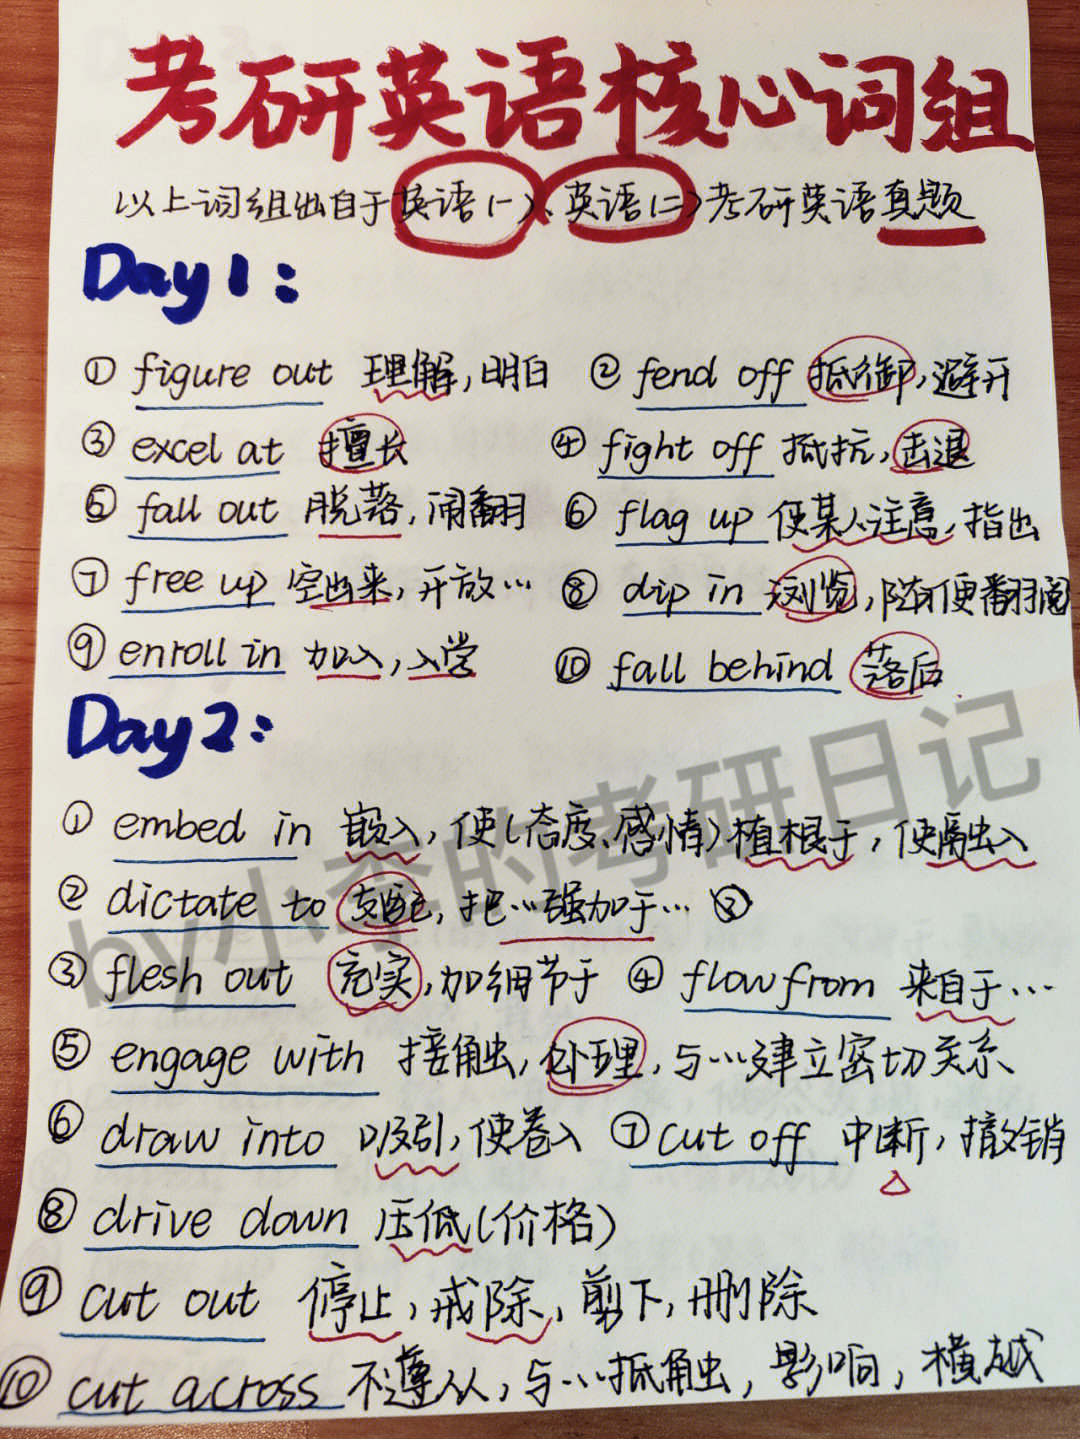 考研英语核心词组
以上词组出自于英语(一)、英语(二)考研英语真题
Day1:
① figure out 理解,明白 ② fend off 抵御,避开
③ excel at 擅长 ④ fight off 抵抗,击退
⑤ fall out 脱落,闹翻 ⑥ flag up 使某人注意,指出
⑦ free up 空出来,开放… ⑧ dip in 浏览,随便翻阅
⑨ enroll in 加入,入学 ⑩ fall behind 落后
Day2:
① embed in 嵌入,使(态度、感情)植根于,使融入
② dictate to 支配,把…强加于… ③
③ flesh out 充实,加细节于 ④ flow from 来自于…
⑤ engage with 接触,处理,与…建立密切关系
⑥ draw into 吸引,使卷入 ⑦ cut off 中断,撤销
⑧ drive down 压低(价格)
⑨ cut out 停止,戒除,剪下,删除
⑩ cut across 不遵从,与…抵触,影响,横越
by小李的考研日记